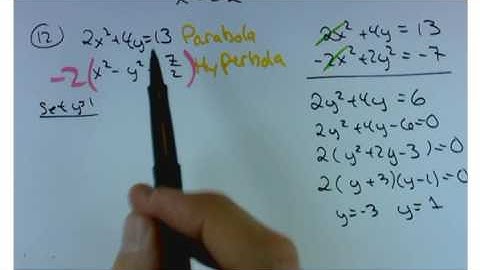 (12) 2x²+4y=13 Parabola
-2(x²-y² 7/2) Hyperbola
Set y=1
2x²+4y=13
-2x²+2y²=-7
2y²+4y=6
2y²+4y-6=0
2(y²+2y-3)=0
2(y+3)(y-1)=0
y=-3 y=1